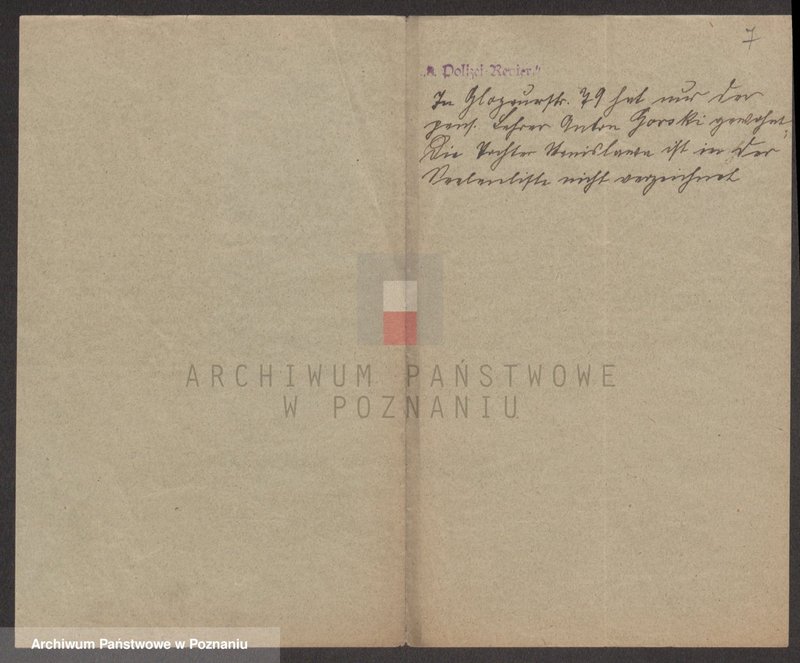 7
"n. Polizei-Revier."
In Glogauerstr. 79 hat nur der
pens. Lehrer Anton Gorski gewohnt.
Die Tochter Bronislawa ist in der
Seelenliste nicht verzeichnet
ARCHIWUM PAŃSTWOWE
W POZNANIU
Archiwum Państwowe w Poznaniu